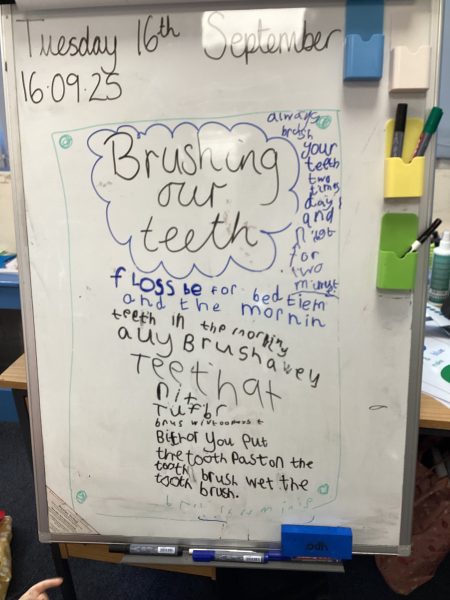 Tuesday 16th September
16.09.25
always
brush
your
teeth
two
times
day
and
nigt
for
two
Brushing
our
teeth
floss be for bed tiem
and the mornin
teeth in the morning
auy Brush awey
Teethat
nit
Bithor you put
the tooth past on the
tooth brush wet the
tooth brush.